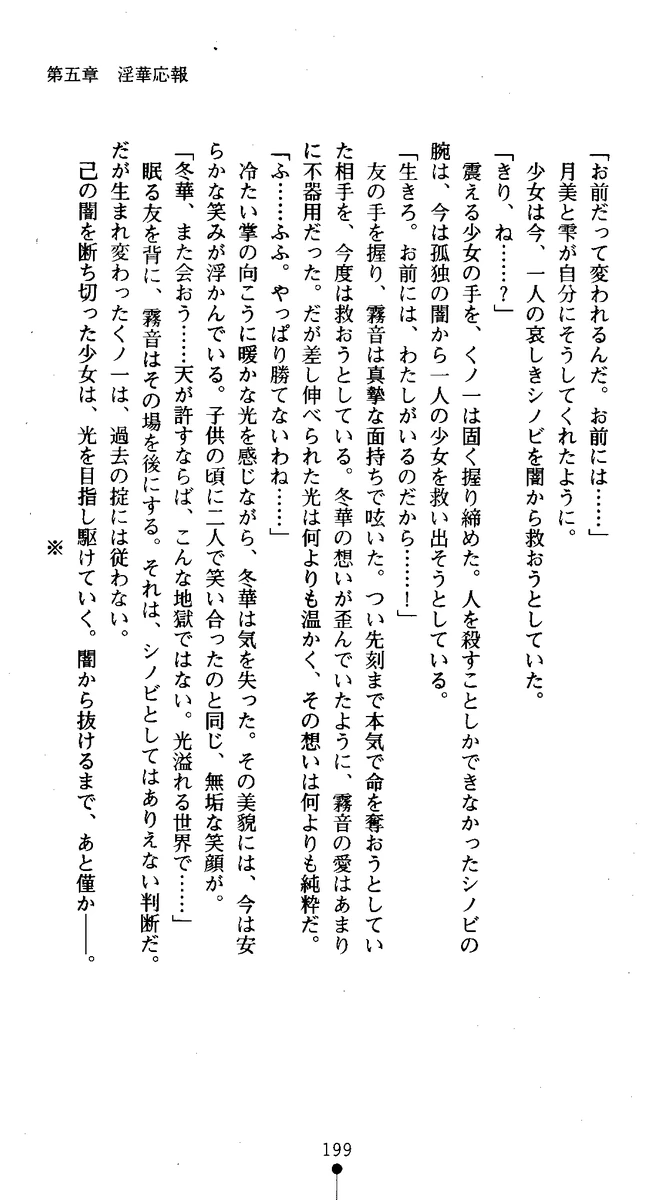 第五章　淫華応報
「お前だって変われるんだ。お前には……」
　月美と雫が自分にそうしてくれたように。
　少女は今、一人の哀しきシノビを闇から救おうとしていた。
「きり、ね……？」
　震える少女の手を、くノ一は固く握り締めた。人を殺すことしかできなかったシノビの
腕は、今は孤独の闇から一人の少女を救い出そうとしている。
「生きろ。お前には、わたしがいるのだから……！」
　友の手を握り、霧音は真摯な面持ちで呟いた。つい先刻まで本気で命を奪おうとしてい
た相手を、今度は救おうとしている。冬華の想いが歪んでいたように、霧音の愛はあまり
に不器用だった。だが差し伸べられた光は何よりも温かく、その想いは何よりも純粋だ。
「ふ……ふふ。やっぱり勝てないわね……」
　冷たい掌の向こうに暖かな光を感じながら、冬華は気を失った。その美貌には、今は安
らかな笑みが浮かんでいる。子供の頃に二人で笑い合ったのと同じ、無垢な笑顔が。
「冬華、また会おう……天が許すならば、こんな地獄ではない。光溢れる世界で……」
　眠る友を背に、霧音はその場を後にする。それは、シノビとしてはありえない判断だ。
だが生まれ変わったくノ一は、過去の掟には従わない。
　己の闇を断ち切った少女は、光を目指し駆けていく。闇から抜けるまで、あと僅か――。
※
199